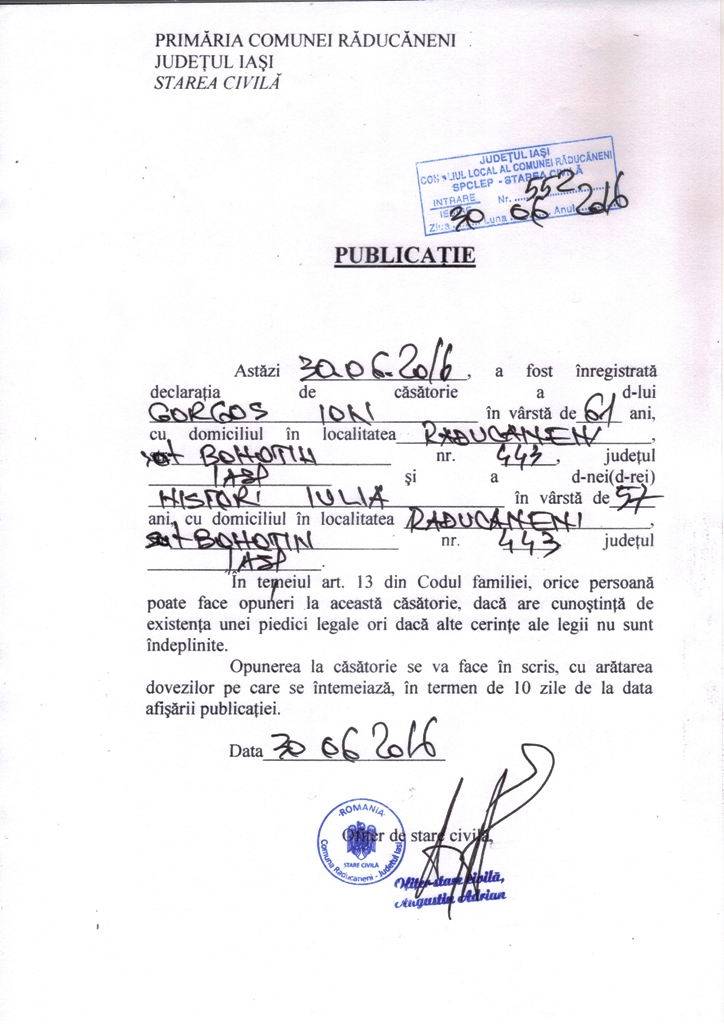 PRIMĂRIA COMUNEI RĂDUCĂNENI
JUDEŢUL IAŞI
STAREA CIVILĂ
JUDEŢUL IAŞI
CONSILIUL LOCAL AL COMUNEI RĂDUCĂNENI
SPCLEP - STAREA CIVILĂ
INTRARE Nr. 552
IEŞIRE
Ziua 30 Luna 06 Anul 2016
PUBLICAŢIE
Astăzi 30.06.2016, a fost înregistrată
declaraţia de căsătorie a d-lui
GORGOS ION în vârstă de 61 ani,
cu domiciliul în localitatea RADUCANENI,
sat BOHOTIN nr. 443, judeţul
IASI şi a d-nei(d-rei)
HISTORI IULIA în vârstă de 57
ani, cu domiciliul în localitatea RADUCANENI,
sat BOHOTIN nr. 443 judeţul
IASI.
În temeiul art. 13 din Codul familiei, orice persoană
poate face opuneri la această căsătorie, dacă are cunoştinţă de
existenţa unei piedici legale ori dacă alte cerinţe ale legii nu sunt
îndeplinite.
Opunerea la căsătorie se va face în scris, cu arătarea
dovezilor pe care se întemeiază, în termen de 10 zile de la data
afişării publicaţiei.
Data 30 06 2016
Ofiţer de stare civilă,
ROMANIA
STARE CIVILĂ
Comuna Raducaneni - Judetul Iasi
Ofiter stare civilă,
Augustin Adrian